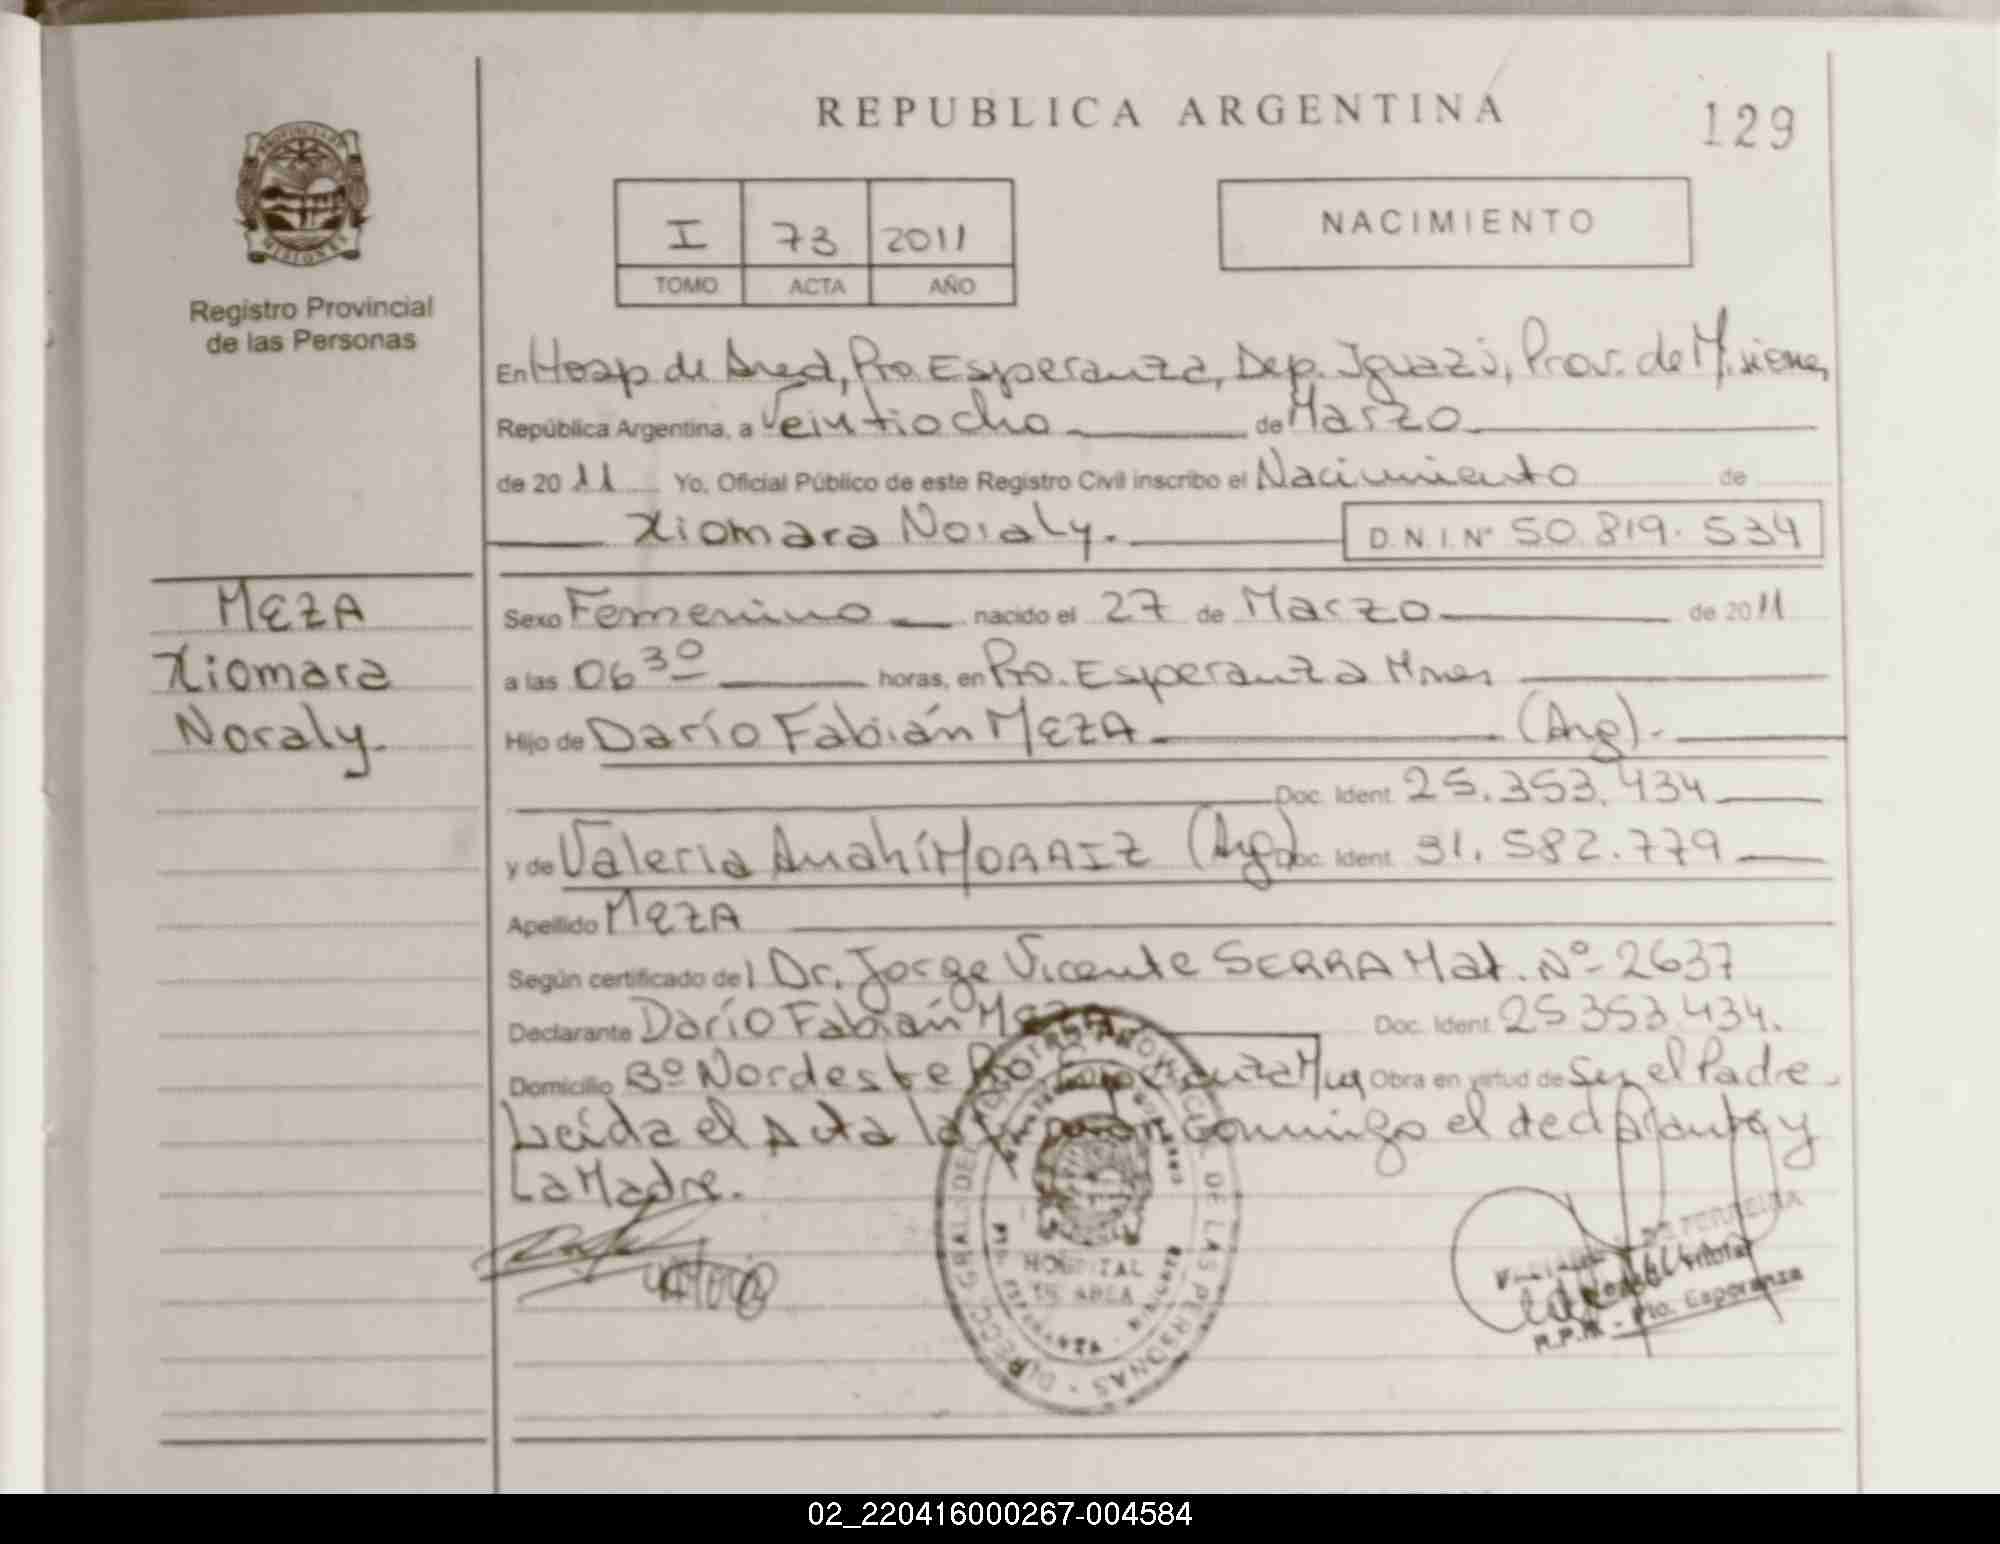 REPUBLICA ARGENTINA
129
PROVINCIA DE MISIONES
Registro Provincial
de las Personas
I 73 2011
TOMO ACTA AÑO
NACIMIENTO
En Hosp. de Area, Pto. Esperanza, Dep. Iguazú, Prov. de Misiones,
República Argentina, a Veintiocho de Marzo
de 2011 Yo, Oficial Público de este Registro Civil inscribo el Nacimiento de
Xiomara Noraly. D.N.I. Nº 50.819.534
MEZA
Xiomara
Noraly.
Sexo Femenino nacido el 27 de Marzo de 2011
a las 06 30 horas, en Pto. Esperanza Mnes
Hijo de Darío Fabián MEZA (Arg).
Doc. Ident. 25.353.434
y de Valeria Anahí MORAIZ (Arg) Doc. Ident. 31.582.779
Apellido MEZA
Según certificado del Dr. Jorge Vicente SERRA Mat. Nº 2637
Declarante Darío Fabián MEZA Doc. Ident. 25 353 434.
Domicilio Bº Nordeste Pto. Esperanza Obra en virtud de Ser el Padre.
Leída el Acta la conmigo el declarante y
La Madre.
DIRECC. GRAL. DEL REGISTRO PROVINCIAL DE LAS PERSONAS
HOSPITAL
DE AREA
PTO. ESPERANZA - MISIONES
DE FERREIRA
R.P.P. - Pto. Esperanza
02_220416000267-004584